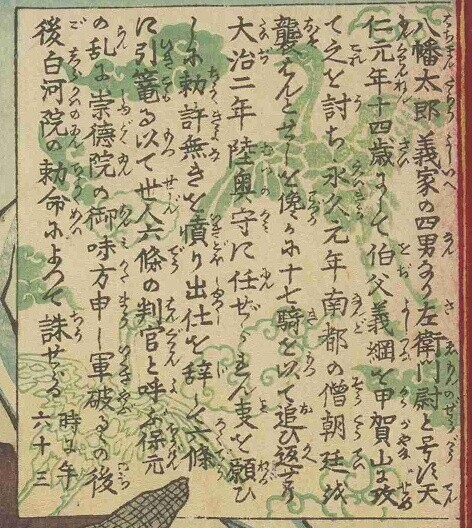 八幡太郎義家の四男なり左衛門尉と号す天
仁元年十四歳にて伯父義綱を甲賀山に攻
て之を討ち永久元年南都の僧朝廷を
襲はんとせしを僅に十七騎を以て追ひ返せり
大治二年陸奥守に任ぜられん事を願ひ
しに勅許無きを憤り出仕を辞し六條
に引篭る以て世人六條の判官と呼ぶ保元
の乱に崇徳院の御味方申し軍破るゝの後
後白河院の勅命によつて誅せらる 時に年六十三